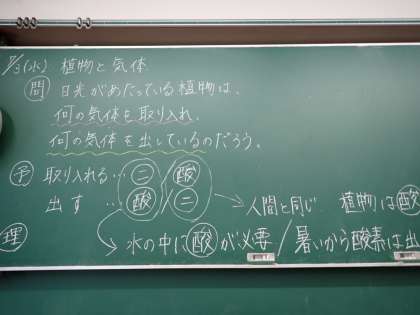 7/3(水) 植物と気体
問 日光があたっている植物は、
何の気体を取り入れ、
何の気体を出しているのだろう。
予 取り入れる… 二 / 酸
出す … 酸 / 二
→人間と同じ. 植物は酸
理 →水の中に酸が必要 / 暑いから酸素は出